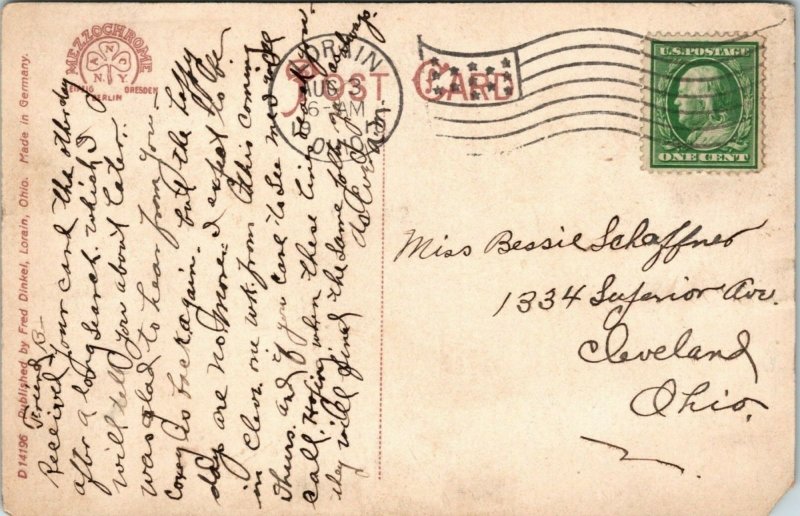 MEZZOCHROME
ANCO
N.Y.
LEIPZIG DRESDEN
BERLIN
POST CARD
LORAIN
AUG 3
6-AM
19
U.S. POSTAGE
ONE CENT
D 14196 Published by Fred Dinkel, Lorain, Ohio. Made in Germany.
Friend B—
Received your card the other day
after a long search which I
will tell you about later.
was glad to hear from you—
Corey is back again. but the happy
days are no more. I expect to be
in Cleve. one wk. from this coming
Thurs. and if you care to see me
call. Hoping when these lines reach you
they will find the same
as ever
Miss Bessie Schaffner
1334 Superior Ave.
Cleveland
Ohio.